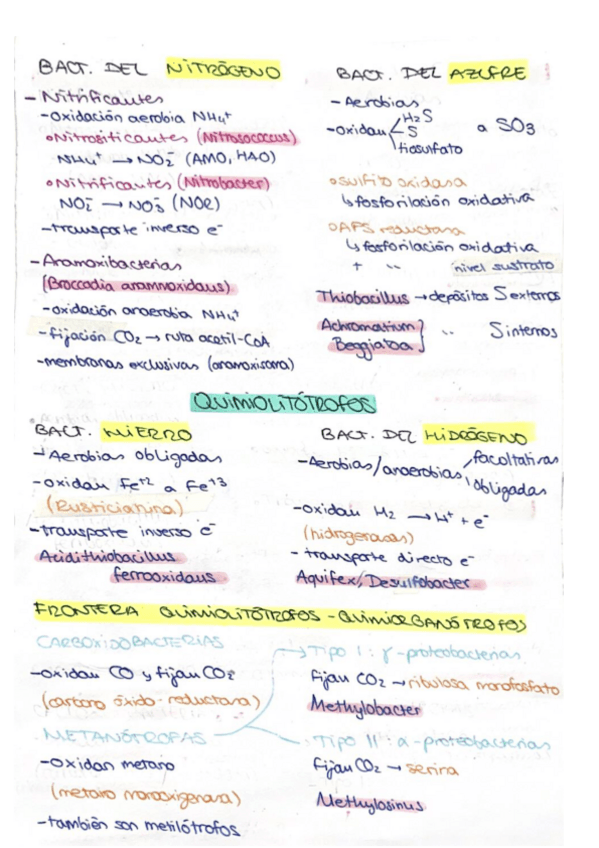 BACT. DEL NITRÓGENO
- Nitrificantes
-oxidación aerobia NH₄⁺
•Nitrositicantes (Nitrosococcus)
NH₄⁺ → NO₂⁻ (AMO, HAO)
•Nitrificantes (Nitrobacter)
NO₂⁻ → NO₃⁻ (NOR)
-transporte inverso e⁻
-Anamoxibacterias
(Broccadia anammoxidans)
-oxidación anaerobia NH₄⁺
-fijación CO₂ → ruta acetil-CoA
-membranas exclusivas (anamoxisoma)
BACT. DEL AZUFRE
- Aerobias
-oxidan H₂S a SO₃
S
tiosulfato
•sulfito oxidasa
↳ fosforilación oxidativa
•APS reductasa
↳ fosforilación oxidativa
+ " nivel sustrato
Thiobacillus → depósitos S externos
Achromatium } " S internos
Beggiatoa
QUIMIOLITÓTROFOS
BACT. HIERRO
- Aerobias obligadas
-oxidan Fe⁺² a Fe⁺³
(Rusticianina)
-transporte inverso e⁻
Acidithiobacillus
ferrooxidans
BACT. DEL HIDRÓGENO
-Aerobias/anaerobias, facoltativas
obligadas
-oxidan H₂ → H⁺ + e⁻
(hidrogenasas)
- transporte directo e⁻
Aquifex, Desulfobacter
FRONTERA QUIMIOLITÓTROFOS - QUIMIORGANÓTROFOS
CARBOXIDOBACTERIAS
-oxidan CO y fijan CO₂
(carbono óxido-reductasa)
METANÓTROFAS
-oxidan metano
(metano monooxigenasa)
-también son metilótrofos
→ Tipo I: γ-proteobacterias
fijan CO₂ → ribulosa monofosfato
Methylobacter
→ Tipo II: α-proteobacterias
fijan CO₂ → serina
Methylosinus